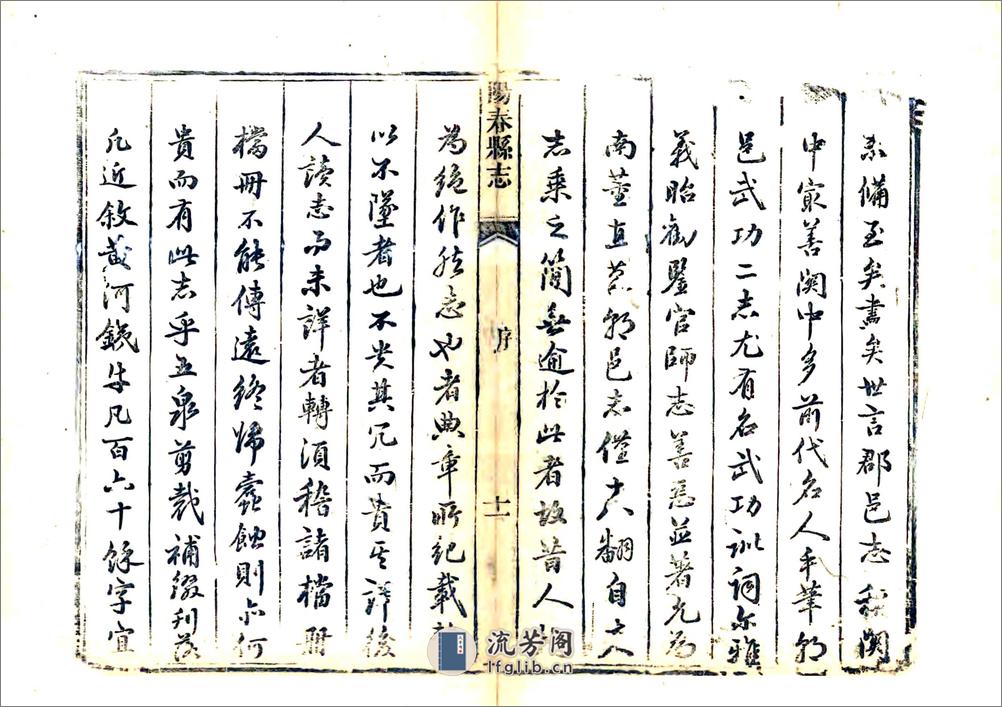 綦備至矣盡矣世言郡邑志私關
中最善關中多前代名人手筆朝
邑武功二志尤有名武功訓詞爾雅
義昭勸鑒官師志善惡並著尤為
南董直筆朝邑志僅十八翻自古
志乘之簡無逾於此者故昔人
為絕作然志也者典章所紀載
以不墜者也不貴其冗而貴其詳後
人讀志而未詳者轉須稽諸檔冊
檔冊不能傳遠終歸蠹蝕則亦何
貴而有此志乎五泉剪裁補綴刊落
凡近敘黃河鐵牛凡百六十餘字宜
陽春縣志
序
十一
流芳阁
lfglib.cn